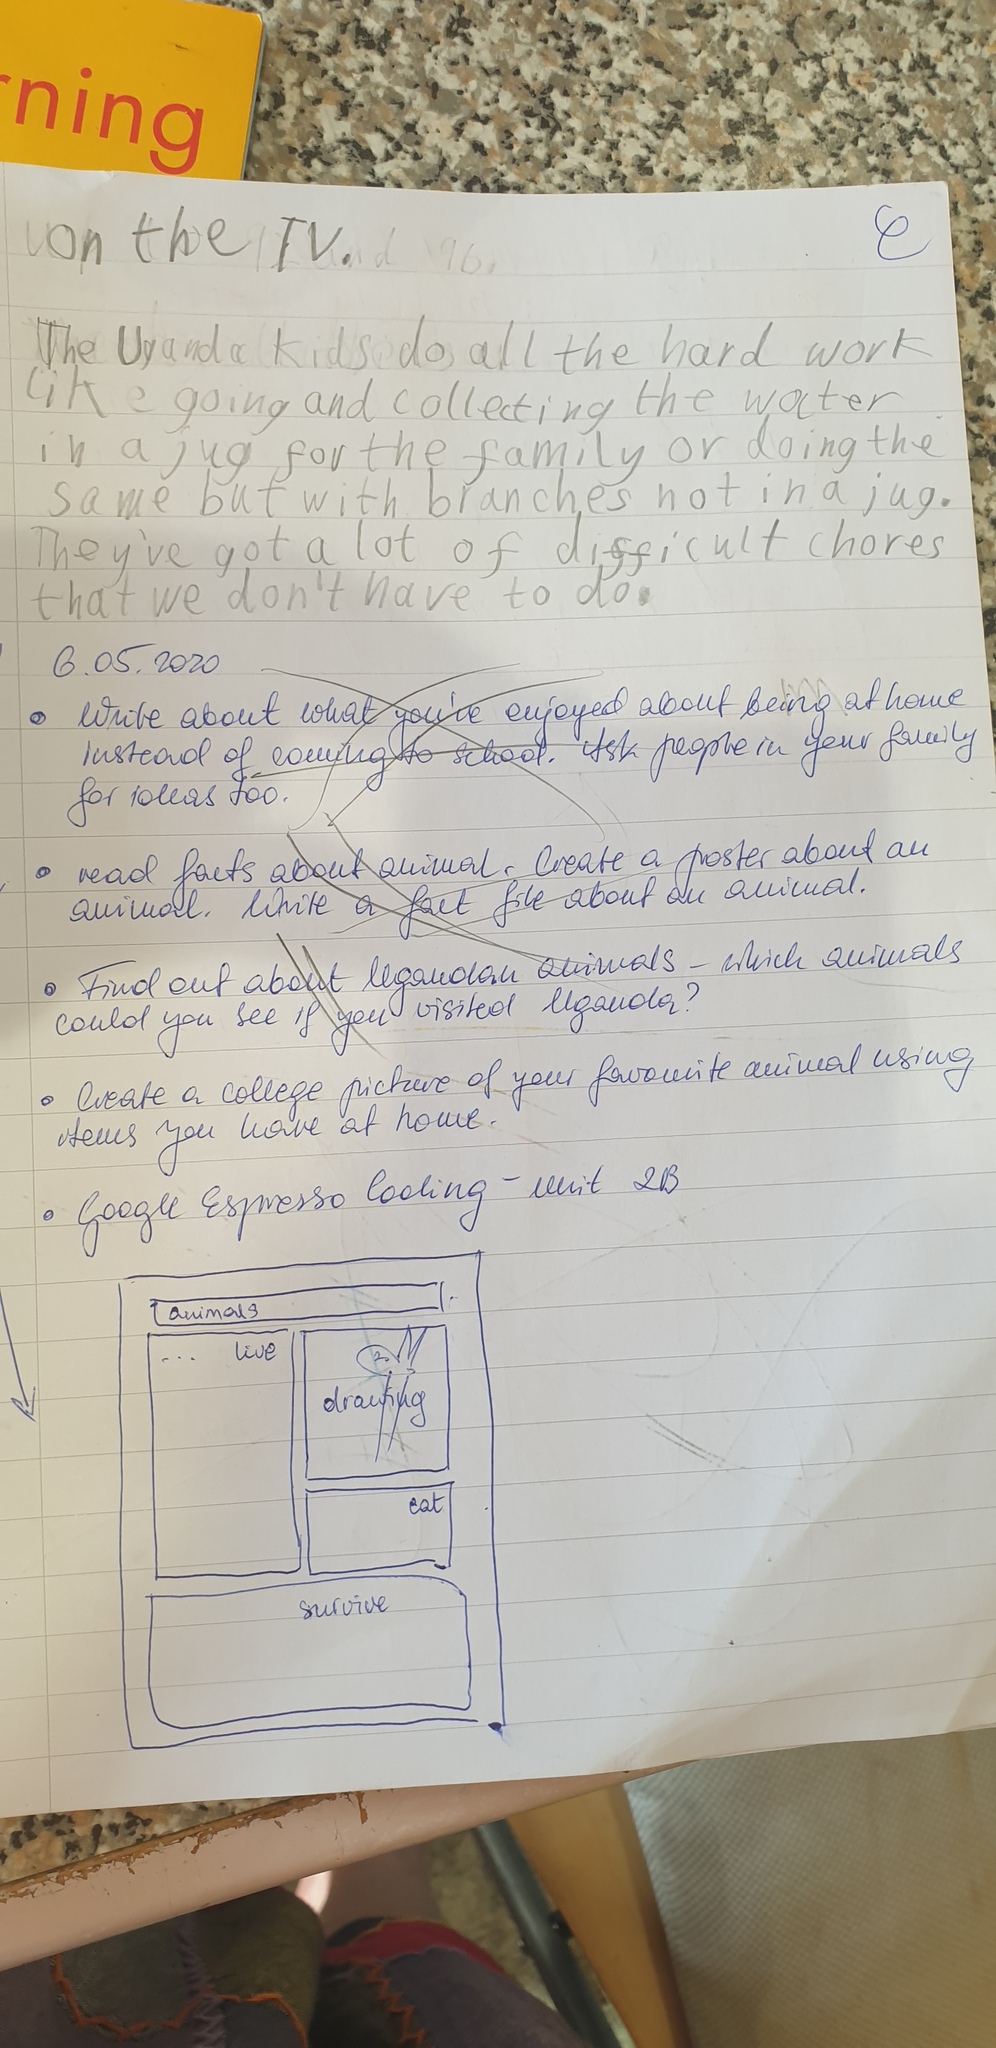 rning
on the TV.
The Uganda kids do all the hard work
like going and collecting the water
in a jug for the family or doing the
same but with branches not in a jug.
They've got a lot of difficult chores
that we don't have to do.
6.05.2020
• Write about what you've enjoyed about being at home
instead of coming to school. Ask people in your family
for ideas too.
• read facts about animal. Create a poster about an
animal. Write a fact file about an animal.
• Find out about Ugandan animals - which animals
could you see if you visited Uganda?
• Create a college picture of your favourite animal using
items you have at home.
• Google Espresso Coding - unit 2B
animals
... live
drawing
eat
survive